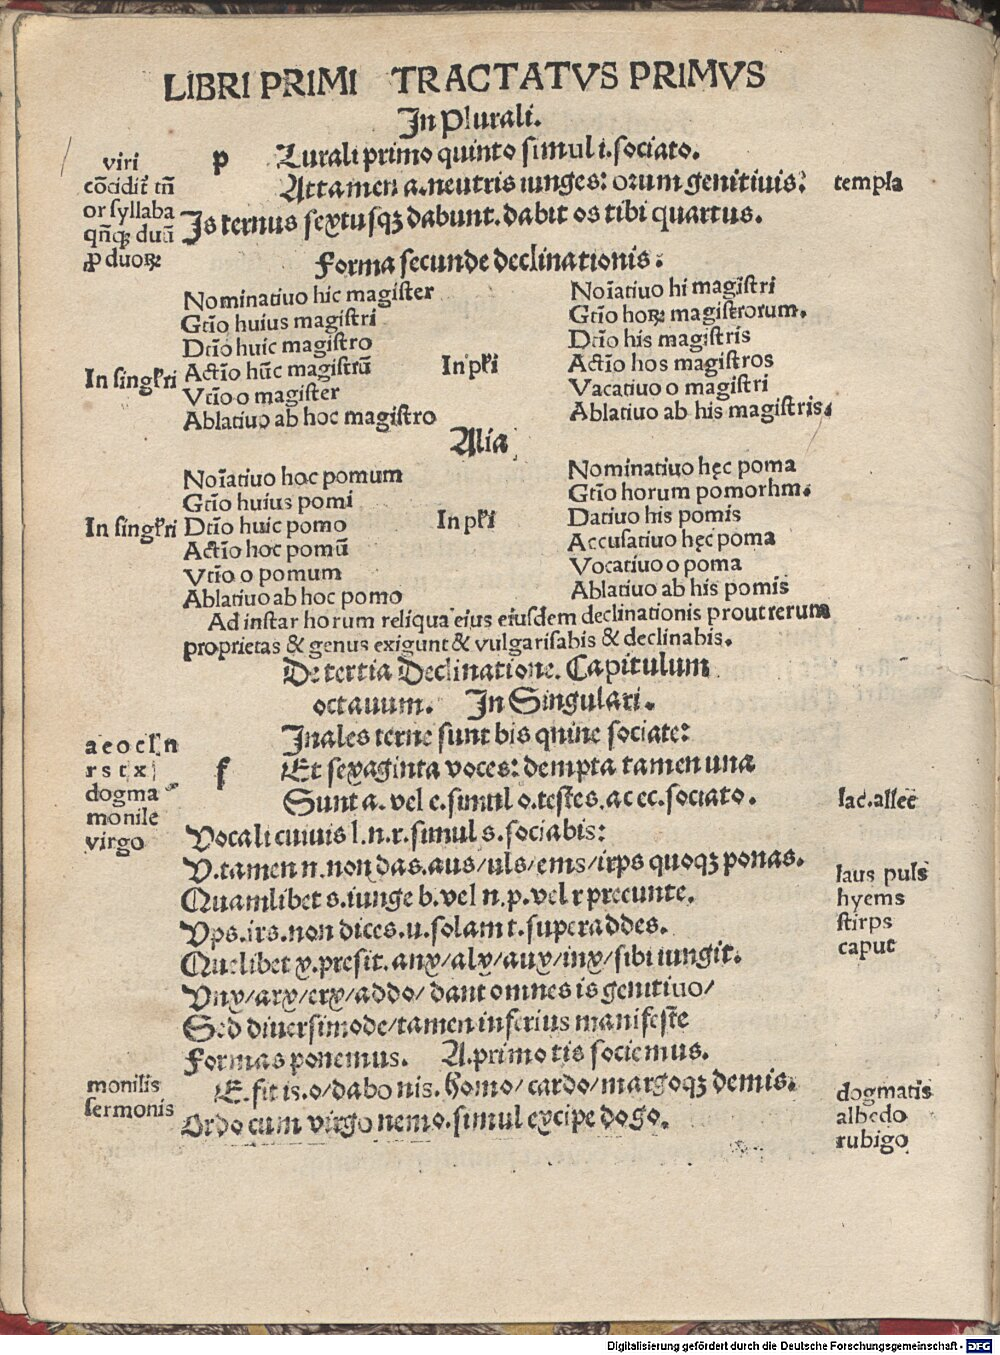 LIBRI PRIMI TRACTATVS PRIMVS
In Plurali.
viri
cōcidit tn̄
or syllaba
qn̄qꝫ duū
ꝓ duoꝝ
p Lurali primo quinto simul i. sociato.
Attamen a. neutris iunges: orum genitiuis: templa
Is ternus sextusqꝫ dabunt. dabit os tibi quartus.
Forma secunde declinationis:
In singl'ri
Nominatiuo hic magister
Gtīo huius magistri
Dtīo huic magistro
Actīo hūc magistrū
Vtīo o magister
Ablatiuo ab hoc magistro
In pl'i
Noīatiuo hi magistri
Gtīo hoꝝ magistrorum.
Dtīo his magistris
Actīo hos magistros
Vacatiuo o magistri
Ablatiuo ab his magistris.
Alia
In singl'ri
Noīatiuo hoc pomum
Gtīo huius pomi
Dtīo huic pomo
Actīo hoc pomū
Vtīo o pomum
Ablatiuo ab hoc pomo
In pl'i
Nominatiuo hęc poma
Gtīo horum pomorhm.
Datiuo his pomis
Accusatiuo hęc poma
Vocatiuo o poma
Ablatiuo ab his pomis
Ad instar horum reliqua eius eiusdem declinationis prout rerum
proprietas & genus exigunt & vulgarisabis & declinabis.
De tertia Declinatione. Capitulum
octauum. In Singulari.
a e o c l n
r s t x
dogma
monile
virgo
f Inales terne sunt bis quine sociate:
Et sexaginta voces: dempta tamen una
Sunt a. vel e. simul o. testes. ac ec. sociato. lac. allec
Vocali cuiuis l. n. r. simul s. sociabis:
V. tamen n. non das. aus/uls/ems/irps quoqꝫ ponas.
Quamlibet s. iunge b. vel n. p. vel r precunte.
Vps. irs. non dices. u. solam t. superaddes.
laus puls
hyems
stirps
caput
Quelibet x. presit. anx/alx/aux/inx/sibi iungit.
Vnx/arx/erx/addo/ dant omnes is genitiuo/
Sed diuersimode/tamen inferius manifeste
Formas ponemus. A. primo tis sociemus.
E. fit is. o/dabo nis. homo/ cardo/margoqꝫ demis.
Ordo cum virgo nemo. simul excipe dogo.
monilis
sermonis
dogmatis
albedo
rubigo
Digitalisierung gefördert durch die Deutsche Forschungsgemeinschaft - DFG